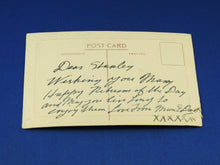 POST CARD
Dear Stanley
Wishing you Many
Happy Returns of the Day
and May you live long to
enjoy them from Mum & Dad
XXXXX